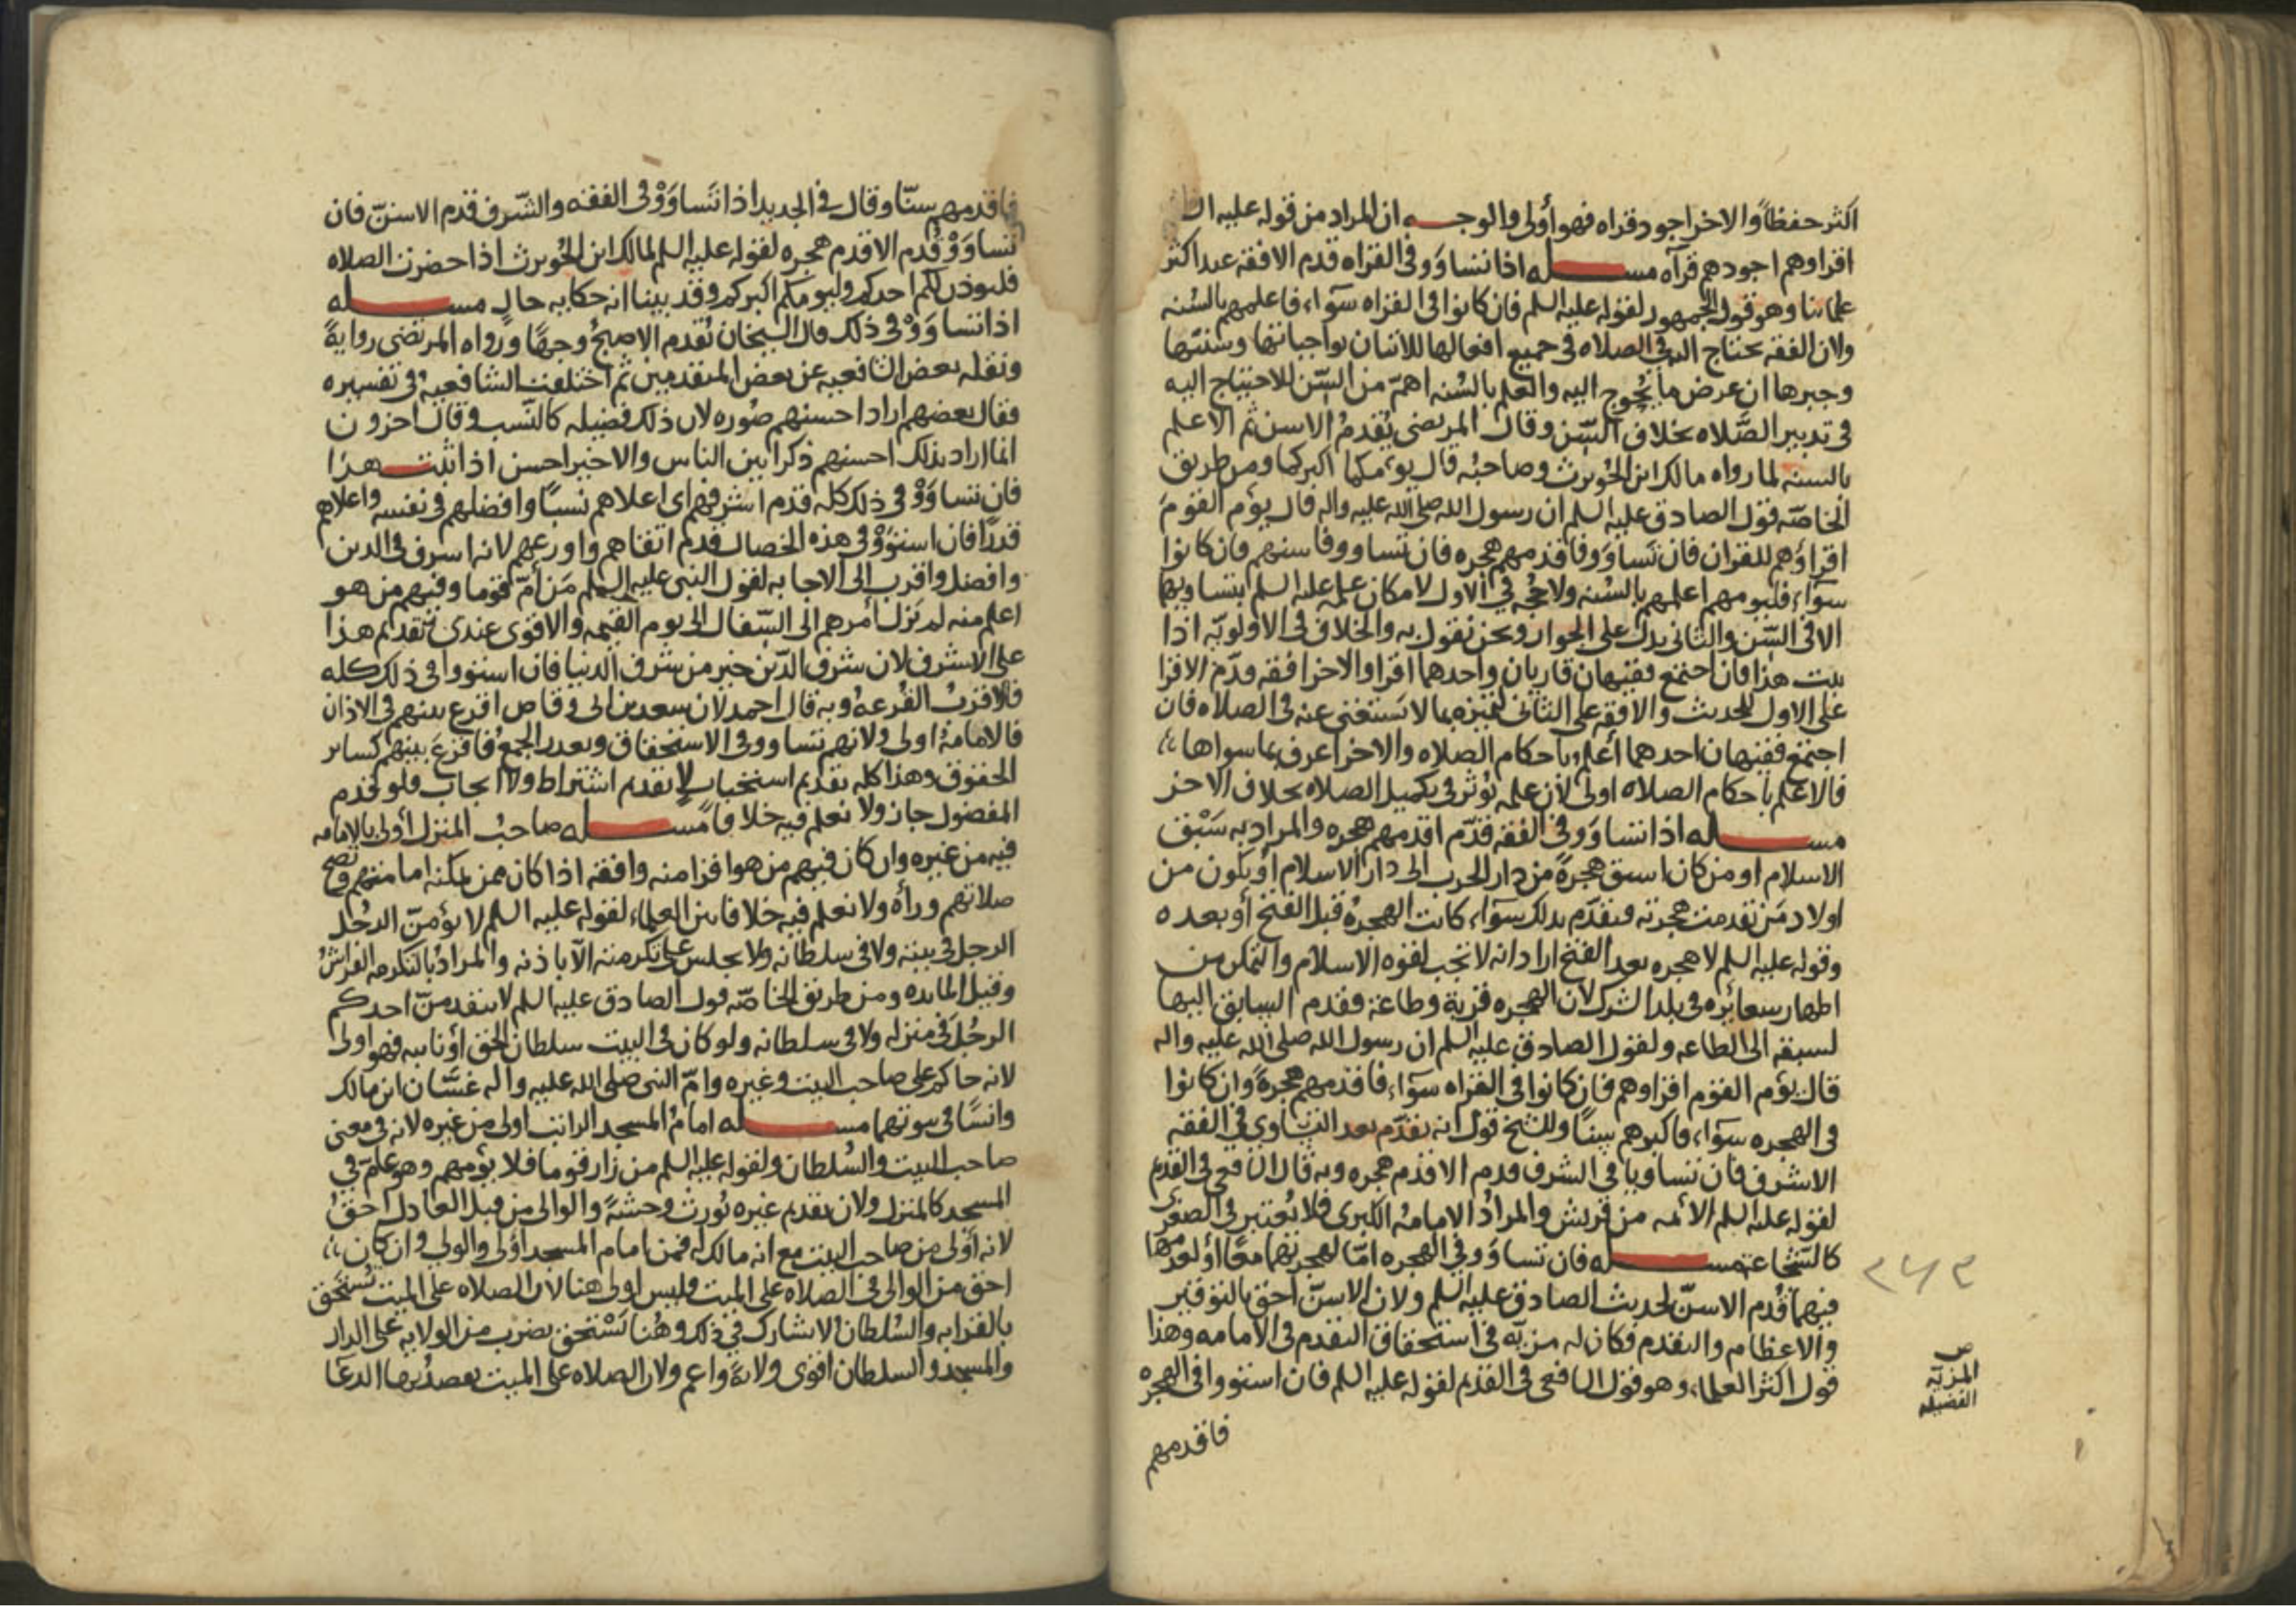 اكثر حفظاً والاخر اجود قراه فهو أولى والوجه ان المراد من قوله عليه
اقراوهم اجودهم قرآه مسله اذا تساوَوا فى القراه قدم الافقه عند اكثر
علمائنا وهو قول الجمهور لقوله عليه السلم فان كانوا فى القراه سوآء فاعلمهم بالسُنه
ولان الفقه يحتاج اليه فى الصلاه فى جميع افعالها للاتيان بواجباتها وسننها
وجبرها ان عرض ما يُحوج اليه والعلم بالسُنه اهمّ من السّن للاحتياج اليه
فى تدبير الصَّلاه بخلاف السّن وقال المرتضى يُقدمُ الاسن ثم الاعلم
بالسنه لما رواه مالك ابن الحُويرث وصاحبُه قال يؤمكما اكبركما ومن طريق
الخاصّه قول الصادق عليه السلم ان رسول الله صلى الله عليه واله قال يؤم القومَ
اقراؤهم للقران فان تَساوَوا فاقدمهم هجره فان تساووا فاسنهم فان كانوا
سوآء فليومهم اعلمهم بالسُنه ولا حُجه فى الاول لامكان علمه عليه السلم بتساويهما
الا فى السّن والثانى يدل على الجواز ونحن نقول به والخلاف فى الاولويّه اذا
ثبت هذا فان اجتمع فقيهان قاريان واحدهما اقرا والاخر افقه قدّم الاقرا
على الاول للحديث والافقه على الثانى لتميّزه بما لا يستغنى عنه فى الصلاه فان
اجتمع فقيهان احدهما أعلم باحكام الصلاه والاخر اعرف بما سواها
فالاعلم باحكام الصلاه اولى لأن علمه يؤثر فى تكميل الصلاه بخلاف الاخر
مسله اذا تساوَوا فى الفقه قدّم اقدمهم هجره والمراد به سَبْق
الاسلام او من كان اسبق هجرةً من دار الحرب الى دار الاسلام أو يكون من
اولاد مَن تقدمت هجرته فيقدّم بذلك سوآء كانت الهجرهُ قبل الفتح أو بعده
وقوله عليه السلم لا هجره بعد الفتح اراد انه لا تجب لقوه الاسلام والتمكن من
اظهار شعائره فى بلد الشرك لان الهجره قربة وطاعة فقدم السابق اليها
لسبقه الى الطاعه ولقول الصادق عليه السلم ان رسول الله صلى الله عليه واله
قال يؤم القوم اقراوهم فان كانوا فى القراه سوآء فاقدمهم هجرةً وان كانوا
فى الهجره سوآء فاكبرهم سِنّاً وللشيخ قول انه يقدّم بعد التساوى فى الفقه
الاشرف فان تساويا فى الشرف قدم الاقدم هجره وبه قال الشافعى فى القديم
لقوله عليه السلم الأئمه من قريش والمرادُ الامامهُ الكبرى فلا يُعتبر فى الصغرى
كالشجاعة مسله فان تساوَوا فى الهجره امّا لهجرتهما معًا أو لعدمها
فيهما قُدم الاسنّ لحديث الصادق عليه السلم ولان الاسنّ احق بالتوقير
والاعظام والتقدم فكان له مزيّه فى استحقاق التقدم فى الامامه وهذا
قول اكثر العلماء وهو قول الشافعى فى القديم لقوله عليه السلم فان استووا فى الهجره
فاقدمهم
المزيّه
الفضيله
فاقدمهم سنّا وقال فى الجديد اذا تَساوَوْا فى الفقه والشّرف قدم الاسنّ فان
تساوَوْا قُدم الاقدم هجره لقوله عليه السلم لمالك ابن الحُويرث اذا حضرت الصلاه
فليوذن لكم احدكم وليومكم اكبركم وقد بينا انه حكايه حال مسله
اذا تساوَوْا فى ذلك قال الشيخان يُقدم الاصبح وجهًا ورواه المرتضى روايةً
ونقله بعض الشافعيه عن بعض المتقدمين ثم اختلفت الشافعيه فى تفسيره
فقال بعضهم اراد احسنهم صُوره لان ذلك فضيله كالنّسب وقال اخرون
انما اراد بذلك احسنهم ذكرا بين الناس والاخير احسن اذا ثبت هذا
فان تساوَوْا فى ذلك كله قدم اشرفهم اى اعلاهم نسبًا وافضلهم فى نفسه واعلاهم
قدرًا فان استوَوْا فى هذه الخصال قُدم اتقاهم واورعهم لانه اشرف فى الدين
وافضل واقرب الى الاجابه لقول النبى عليه السلم مَن أمّ قوما وفيهم من هو
اعلم منه لم يَزل أمرهم الى السّفال الى يوم القيمه والاقوى عندى تقديم هذا
على الاشرف لان شرف الدّين خير من شرف الدنيا فان استووا فى ذلك كله
فالاقربُ القُرعه وبه قال احمد لان سعد بن ابى وقاص اقرع بينهم فى الاذان
فالامامهُ اولى ولانهم تساووا فى الاستحقاق وتعذر الجمع فاقرع بينهم كسائر
الحقوق وهذا كله تقديم استحباب لا تقديم اشتراط ولا ايجاب فلو قدم
المفضول جاز ولا نعلم فيه خلافاً مسله صاحبُ المنزل أولى بالامامه
فيه من غيره وان كان فيهم من هو اقرا منه وافقه اذا كان ممن يمكنه امامتهم وتصح
صلاتهم ورأه ولا نعلم فيه خلافا بين العلماء لقوله عليه السلم لا يؤمنّ الرجل
الرجل فى بيته ولا فى سلطانه ولا يجلس على تكرمته الآ باذنه والمرادُ بالتكرمه الفراشُ
وقيل المائده ومن طريق الخاصّه قول الصادق عليه السلم لا يتقدمنّ احدكم
الرجُلَ فى منزله ولا فى سلطانه ولو كان فى البيت سلطان الحق أو نائبه فهو اولى
لانه حاكم على صاحب البيت وغيره وامّ النبى صلى الله عليه واله غسّان ابن مالك
وانسًا فى بيوتهما مسله امامُ المسجد الراتب اولى من غيره لانه فى معنى
صاحب البيت والسُلطان ولقوله عليه السلم من زار قوما فلا يؤمهم وهو عامّ فى
المسجد كالمنزل ولان تقديم غيره يُورث وحشةً والوالى من قبل العادل احقُ
لانه أوْلى من صاحب البيت مع انه مالك له فمن امام المسجد أولى والولى وان كان
احق من الوالى فى الصلاه على الميت فليس اولى هنا لان الصلاه على الميت تُستحق
بالقرابه والسُلطان لا يشارك فى ذلك وهُنا يَسْتحق بضرب من الولايه على الدار
والمسجد والسلطان اقوى ولايةً واعم ولان الصلاه على الميت يقصدُ بها الدعآ